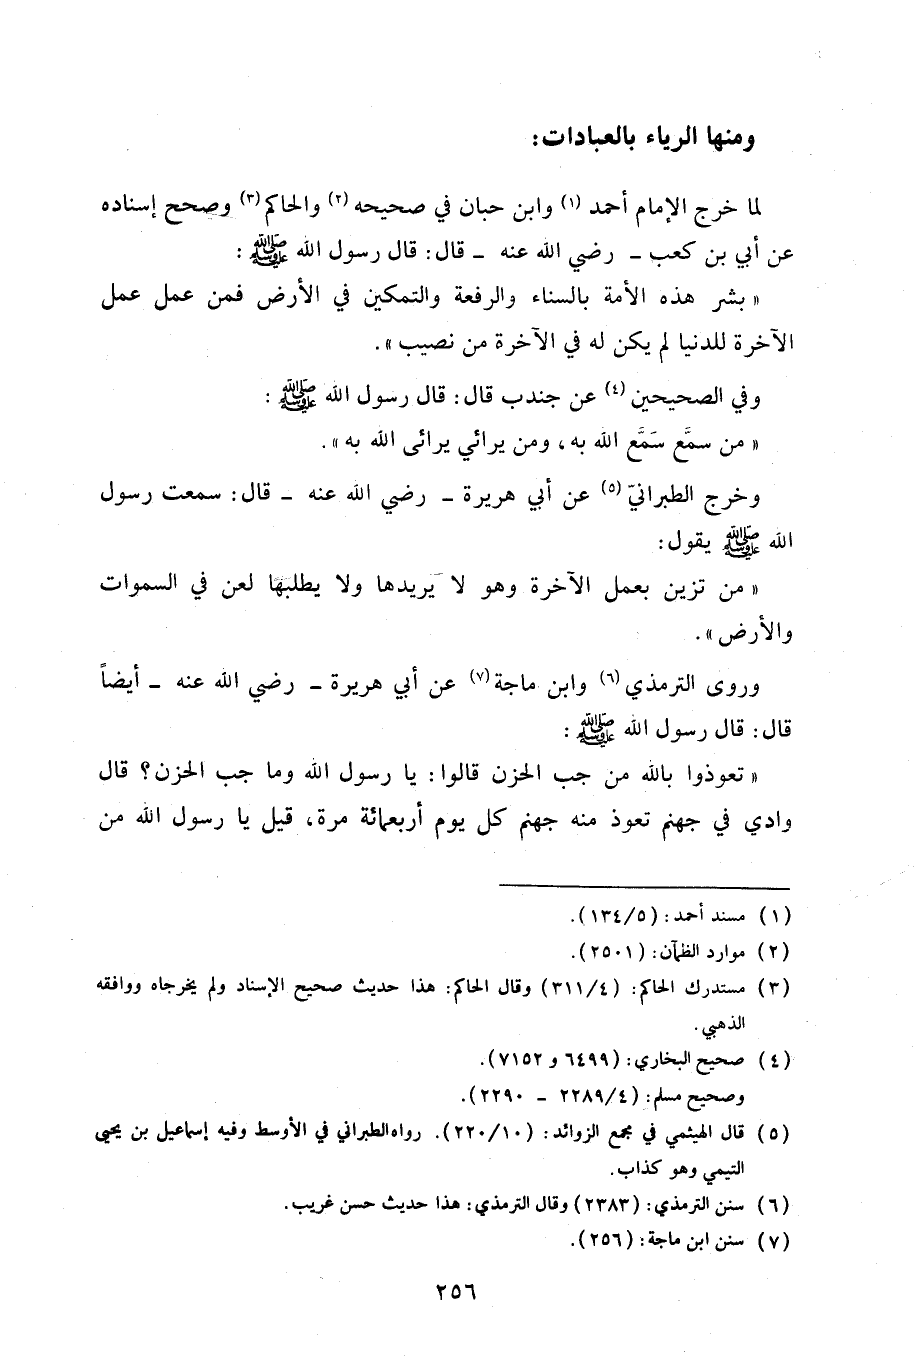 ومنها الرياء بالعبادات:
لما خرج الإمام أحمد (١) وابن حبان في صحيحه (٢) والحاكم (٣) وصحح إسناده
عن أبي بن كعب ـ رضي الله عنه ـ قال: قال رسول الله ﷺ :
« بشر هذه الأمة بالسناء والرفعة والتمكين في الأرض فمن عمل عمل
الآخرة للدنيا لم يكن له في الآخرة من نصيب ».
وفي الصحيحين (٤) عن جندب قال: قال رسول الله ﷺ :
« من سمَّع سَمَّع الله به، ومن يرائي يرائى الله به ».
وخرج الطبرانيّ (٥) عن أبي هريرة ـ رضي الله عنه ـ قال: سمعت رسول
الله ﷺ يقول:
« من تزين بعمل الآخرة وهو لا يريدها ولا يطلبها لعن في السموات
والأرض ».
وروى الترمذي (٦) وابن ماجة (٧) عن أبي هريرة ـ رضي الله عنه ـ أيضاً
قال: قال رسول الله ﷺ :
« تعوذوا بالله من جب الحزن قالوا: يا رسول الله وما جب الحزن؟ قال
وادي في جهنم تعوذ منه جهنم كل يوم أربعمائة مرة، قيل يا رسول الله من
(١) مسند أحمد: (١٣٤/٥).
(٢) موارد الظمآن: (٢٥٠١).
(٣) مستدرك الحاكم: (٣١١/٤) وقال الحاكم: هذا حديث صحيح الإسناد ولم يخرجاه ووافقه
الذهبي.
(٤) صحيح البخاري: (٦٤٩٩ و ٧١٥٢).
وصحيح مسلم: (٢٢٨٩/٤ ـ ٢٢٩٠).
(٥) قال الهيثمي في مجمع الزوائد: (٢٢٠/١٠). رواه الطبراني في الأوسط وفيه إسماعيل بن يحيى
التيمي وهو كذاب.
(٦) سنن الترمذي: (٢٣٨٣) وقال الترمذي: هذا حديث حسن غريب.
(٧) سنن ابن ماجة: (٢٥٦).
٢٥٦